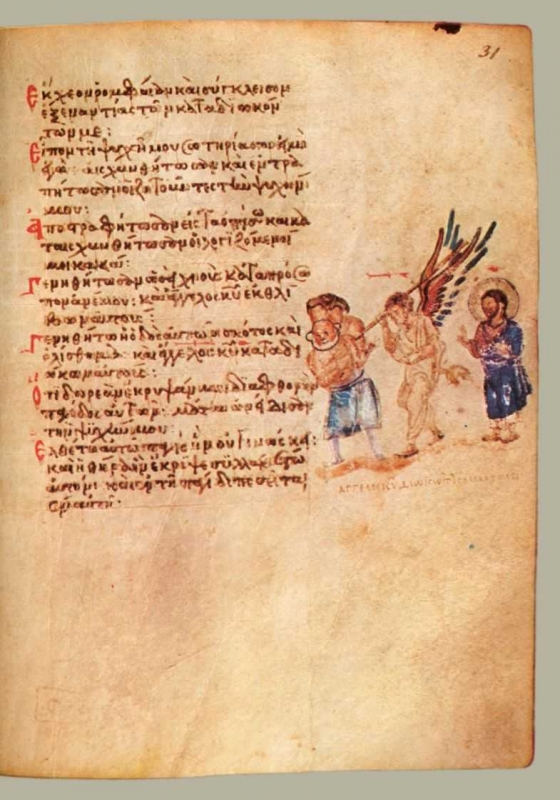 31
Ἐκχεον ρομφαίαν καὶ σύγκλεισον
ἐξεναντίας τῶν καταδιωκόν
των με :
Εἶπον τῇ ψυχῇ μου σωτηρία σου
αἰσχυνθήτωσαν καὶ ἐντρα
πήτωσαν οἱ ζητοῦντες τὴν ψυχήν
μου :
Ἀποστραφήτωσαν εἰς τὰ ὀπίσω καὶ κα
ταισχυνθήτωσαν οἱ λογιζόμενοί
μοι κακά :
Γενηθήτωσαν χνοῦς κατὰ πρόσω
πον ἀνέμου : καὶ ἄγγελος κυ ἐκθλί
βων αὐτούς :
Γενηθήτω ἡ ὁδὸς αὐτῶν σκότος καὶ
ὀλίσθημα : καὶ ἄγγελος κυ καταδι
ώκων αὐτούς :
Ὅτι δωρεὰν ἔκρυψάν μοι διαφθορὰν
παγίδος αὐτῶν : μάτην ὠνείδισαν
τὴν ψυχήν μου :
Ἐλθέτω αὐτῷ παγὶς ἣν οὐ γινώσκει :
καὶ ἡ θήρα ἣν ἔκρυψε συλλαβέτω
αὐτόν : καὶ ἐν τῇ παγίδι πεσεῖται
ἐν αὐτῇ :
ΑΓΓΕΛΟΣ ΚΥ